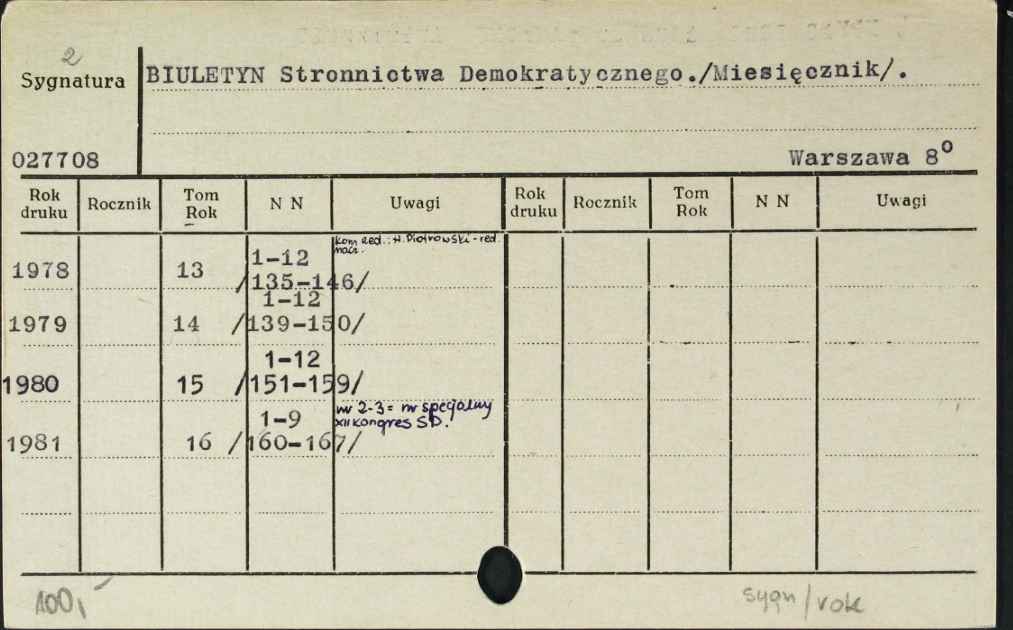 2
Sygnatura
BIULETYN Stronnictwa Demokratycznego./Miesięcznik/.
027708
Warszawa 8º
Rok druku Rocznik Tom Rok N N Uwagi Rok druku Rocznik Tom Rok N N Uwagi
kom red.: H. Piotrowski - red.
nacz.
1-12
1978 13 /135-146/
1-12
1979 14 /139-150/
1-12
1980 15 /151-159/
nr 2-3 = nr specjalny
1-9 XII Kongres SD.
1981 16 /160-167/
100,-
sygn/rok